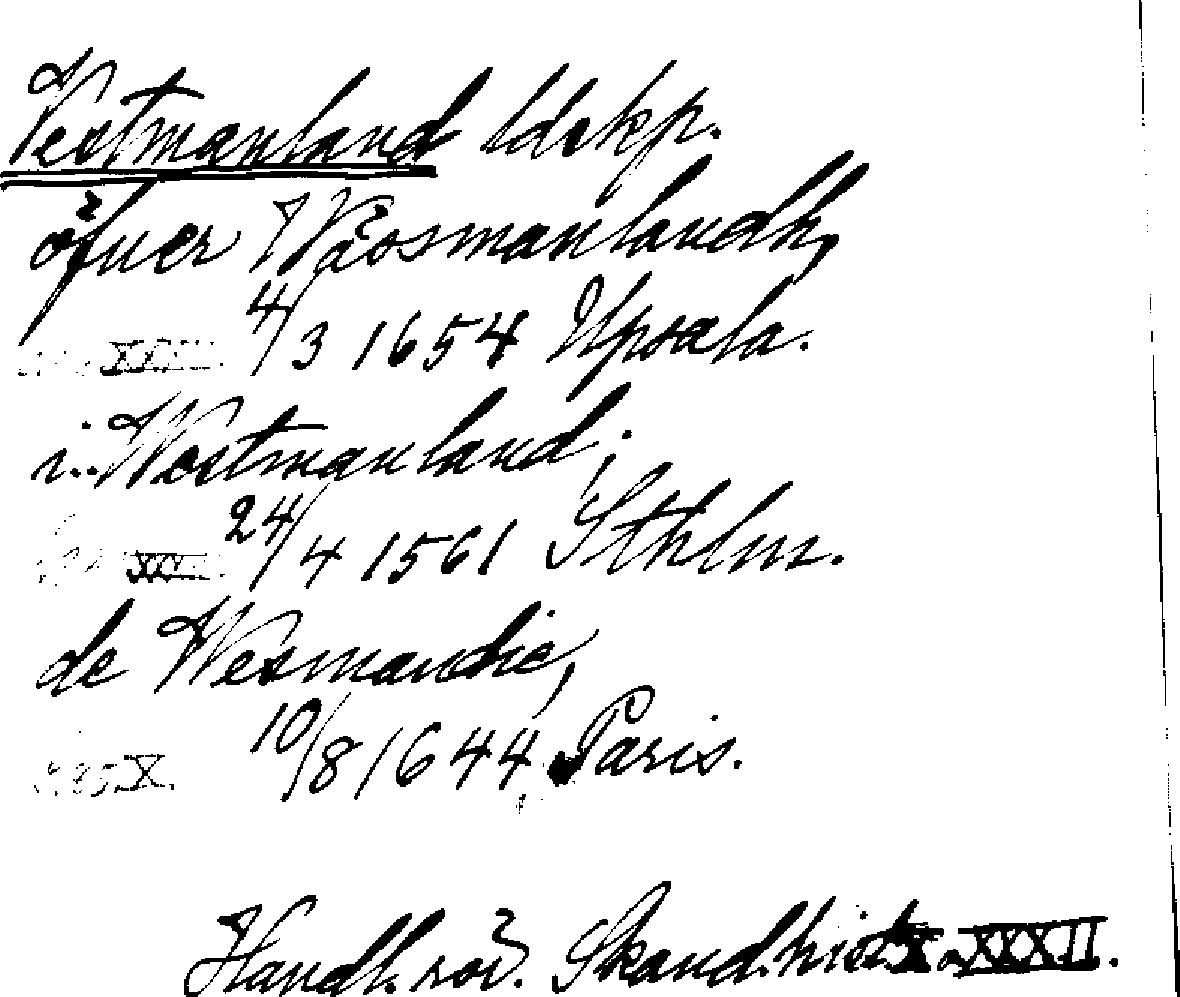 Vestmanland ldskp.
öfuer Wäosmanlandh,
4/3 1654 Upsala.
i Westmanland;
24/4 1561 Sthlm.
de Wesmandie,
10/8 1644 Paris.
X.
Handl. rör. Skand. hist. X XXXII.